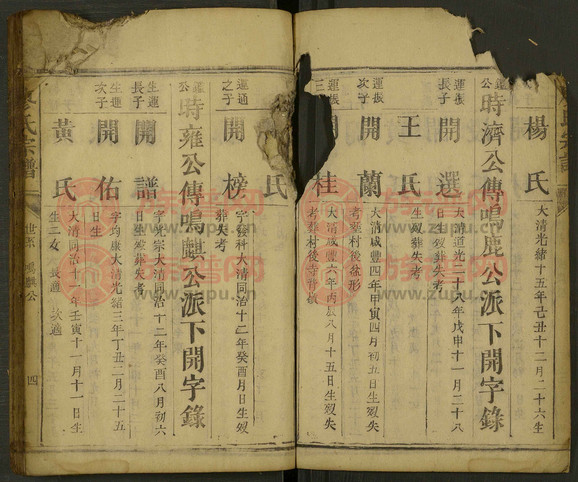 氏宗譜
楊氏
大清光緒十五年己丑十二月二十六生
公
時濟公傳鳴鹿公派下開字錄
運振
長子
開選
大清道光二十八年戊申十一月二十八
日生歿葬失考
王氏
生歿葬失考
運振
次子
開蘭
大清咸豐四年甲寅四月初五日生歿失
考葬村後盆形
運振
三
桂
大清咸豐六年丙辰八月十五日生歿失
考葬村後
氏
運通
之子
開榜
字發科大清同治十二年癸酉月日生歿
葬失考
公
時雍公傳鳴麒公派下開字錄
生運
長子
開譜
字光宗大清同治十二年癸酉八月初六
日生歿葬失考
生運
次子
開佑
字均康大清光緒三年丁丑二月二十五
日生
黃氏
大清同治十一年壬寅十一月十一日生
生二女 長適 次適
氏宗譜
世系 鳴麒公
四
族譜網
www.zupu.cn
族譜網
www.zupu.cn